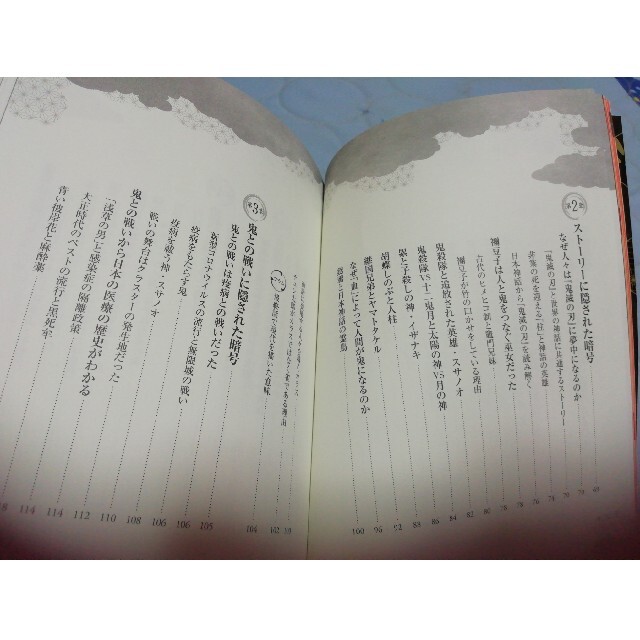 第2章
ストーリーに隠された暗号
なぜ人々は「鬼滅の刃」に夢中になるのか
「鬼滅の刃」と世界の神話に共通するストーリー
非業の死を迎える「柱」と神話の英雄
日本神話から「鬼滅の刃」を読み解く
禰豆子は人と鬼をつなぐ巫女だった
古代のヒメヒコ制と竈門兄妹
禰豆子が竹の口かせをしている理由
鬼殺隊と追放された英雄・スサノオ
鬼殺隊VS十二鬼月と太陽の神VS月の神
累と子殺しの神・イザナキ
胡蝶しのぶと人柱
継国兄弟とヤマトタケル
なぜ「血」によって人間が鬼になるのか
69
70
70
76
78
82
84
86
88
92
96
100
第3章
鬼との戦いに隠された暗号
鬼との戦いは疫病との戦いだった
新型コロナウイルスの流行と無限城の戦い
疫病をもたらす鬼
疫病を祓う神・スサノオ
戦いの舞台はクラスターの発生地だった
鬼との戦いから日本の医療の歴史がわかる
「浅草の男」と感染症の隔離政策
大正時代のペストの流行と黒死牟
青い彼岸花と麻酔薬
102
104
105
106
106
108
110
112
114
114